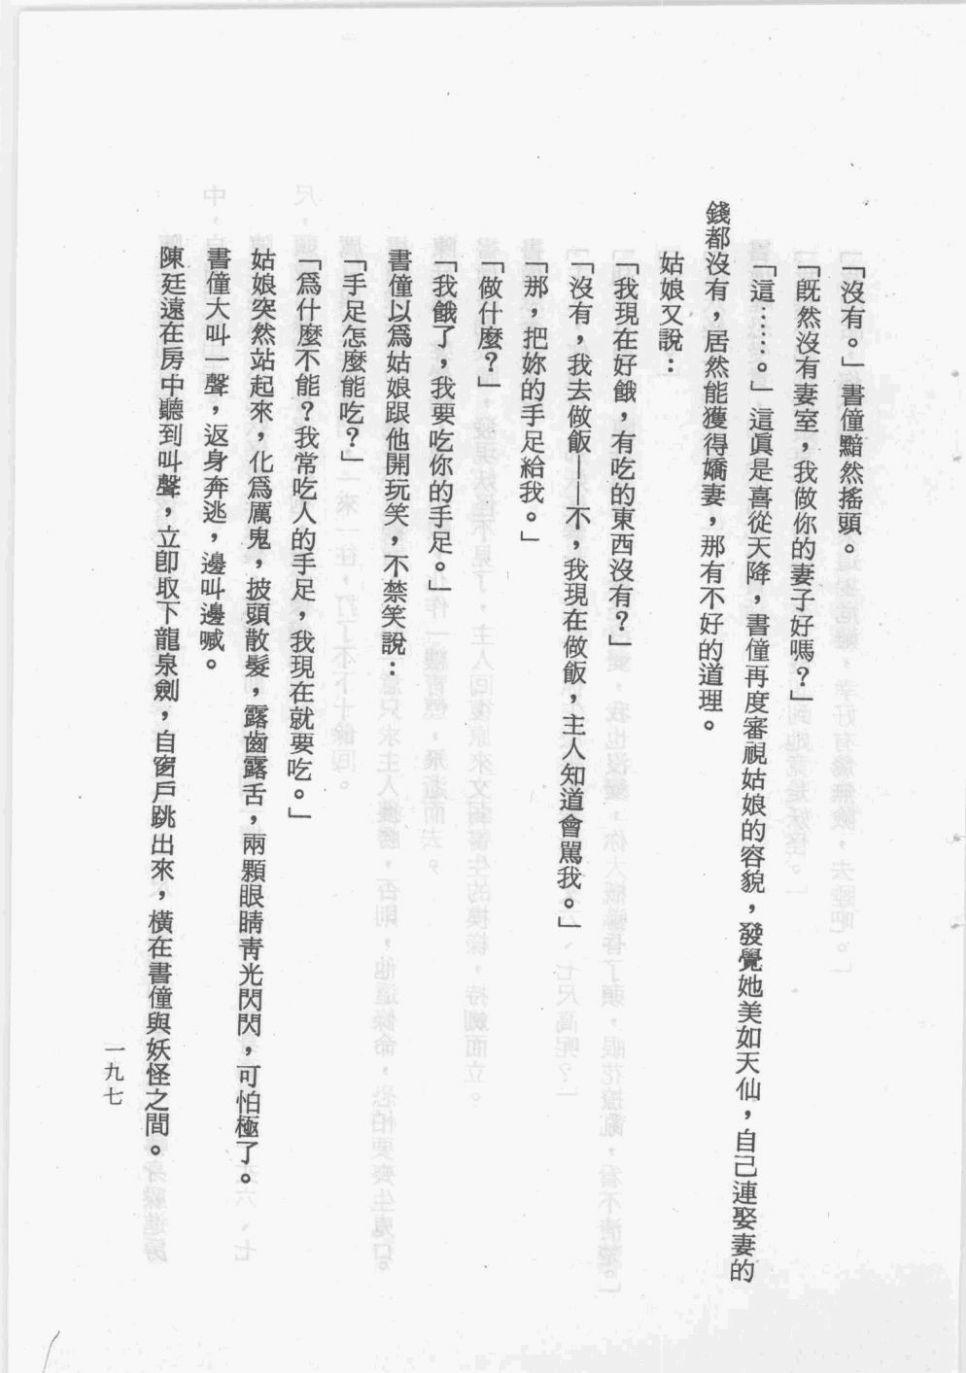 「沒有。」書僮黯然搖頭。
「既然沒有妻室，我做你的妻子好嗎？」
「這……。」這眞是喜從天降，書僮再度審視姑娘的容貌，發覺她美如天仙，自己連娶妻的
錢都沒有，居然能獲得嬌妻，那有不好的道理。
姑娘又說：
「我現在好餓，有吃的東西沒有？」
「沒有，我去做飯——不，我現在做飯，主人知道會罵我。」
「那，把妳的手足給我。」
「做什麼？」
「我餓了，我要吃你的手足。」
書僮以爲姑娘跟他開玩笑，不禁笑說：
「手足怎麼能吃？」
「爲什麼不能？我常吃人的手足，我現在就要吃。」
姑娘突然站起來，化爲厲鬼，披頭散髮，露齒露舌，兩顆眼睛靑光閃閃，可怕極了。
書僮大叫一聲，返身奔逃，邊叫邊喊。
陳廷遠在房中聽到叫聲，立卽取下龍泉劍，自窗戶跳出來，橫在書僮與妖怪之間。
一九七